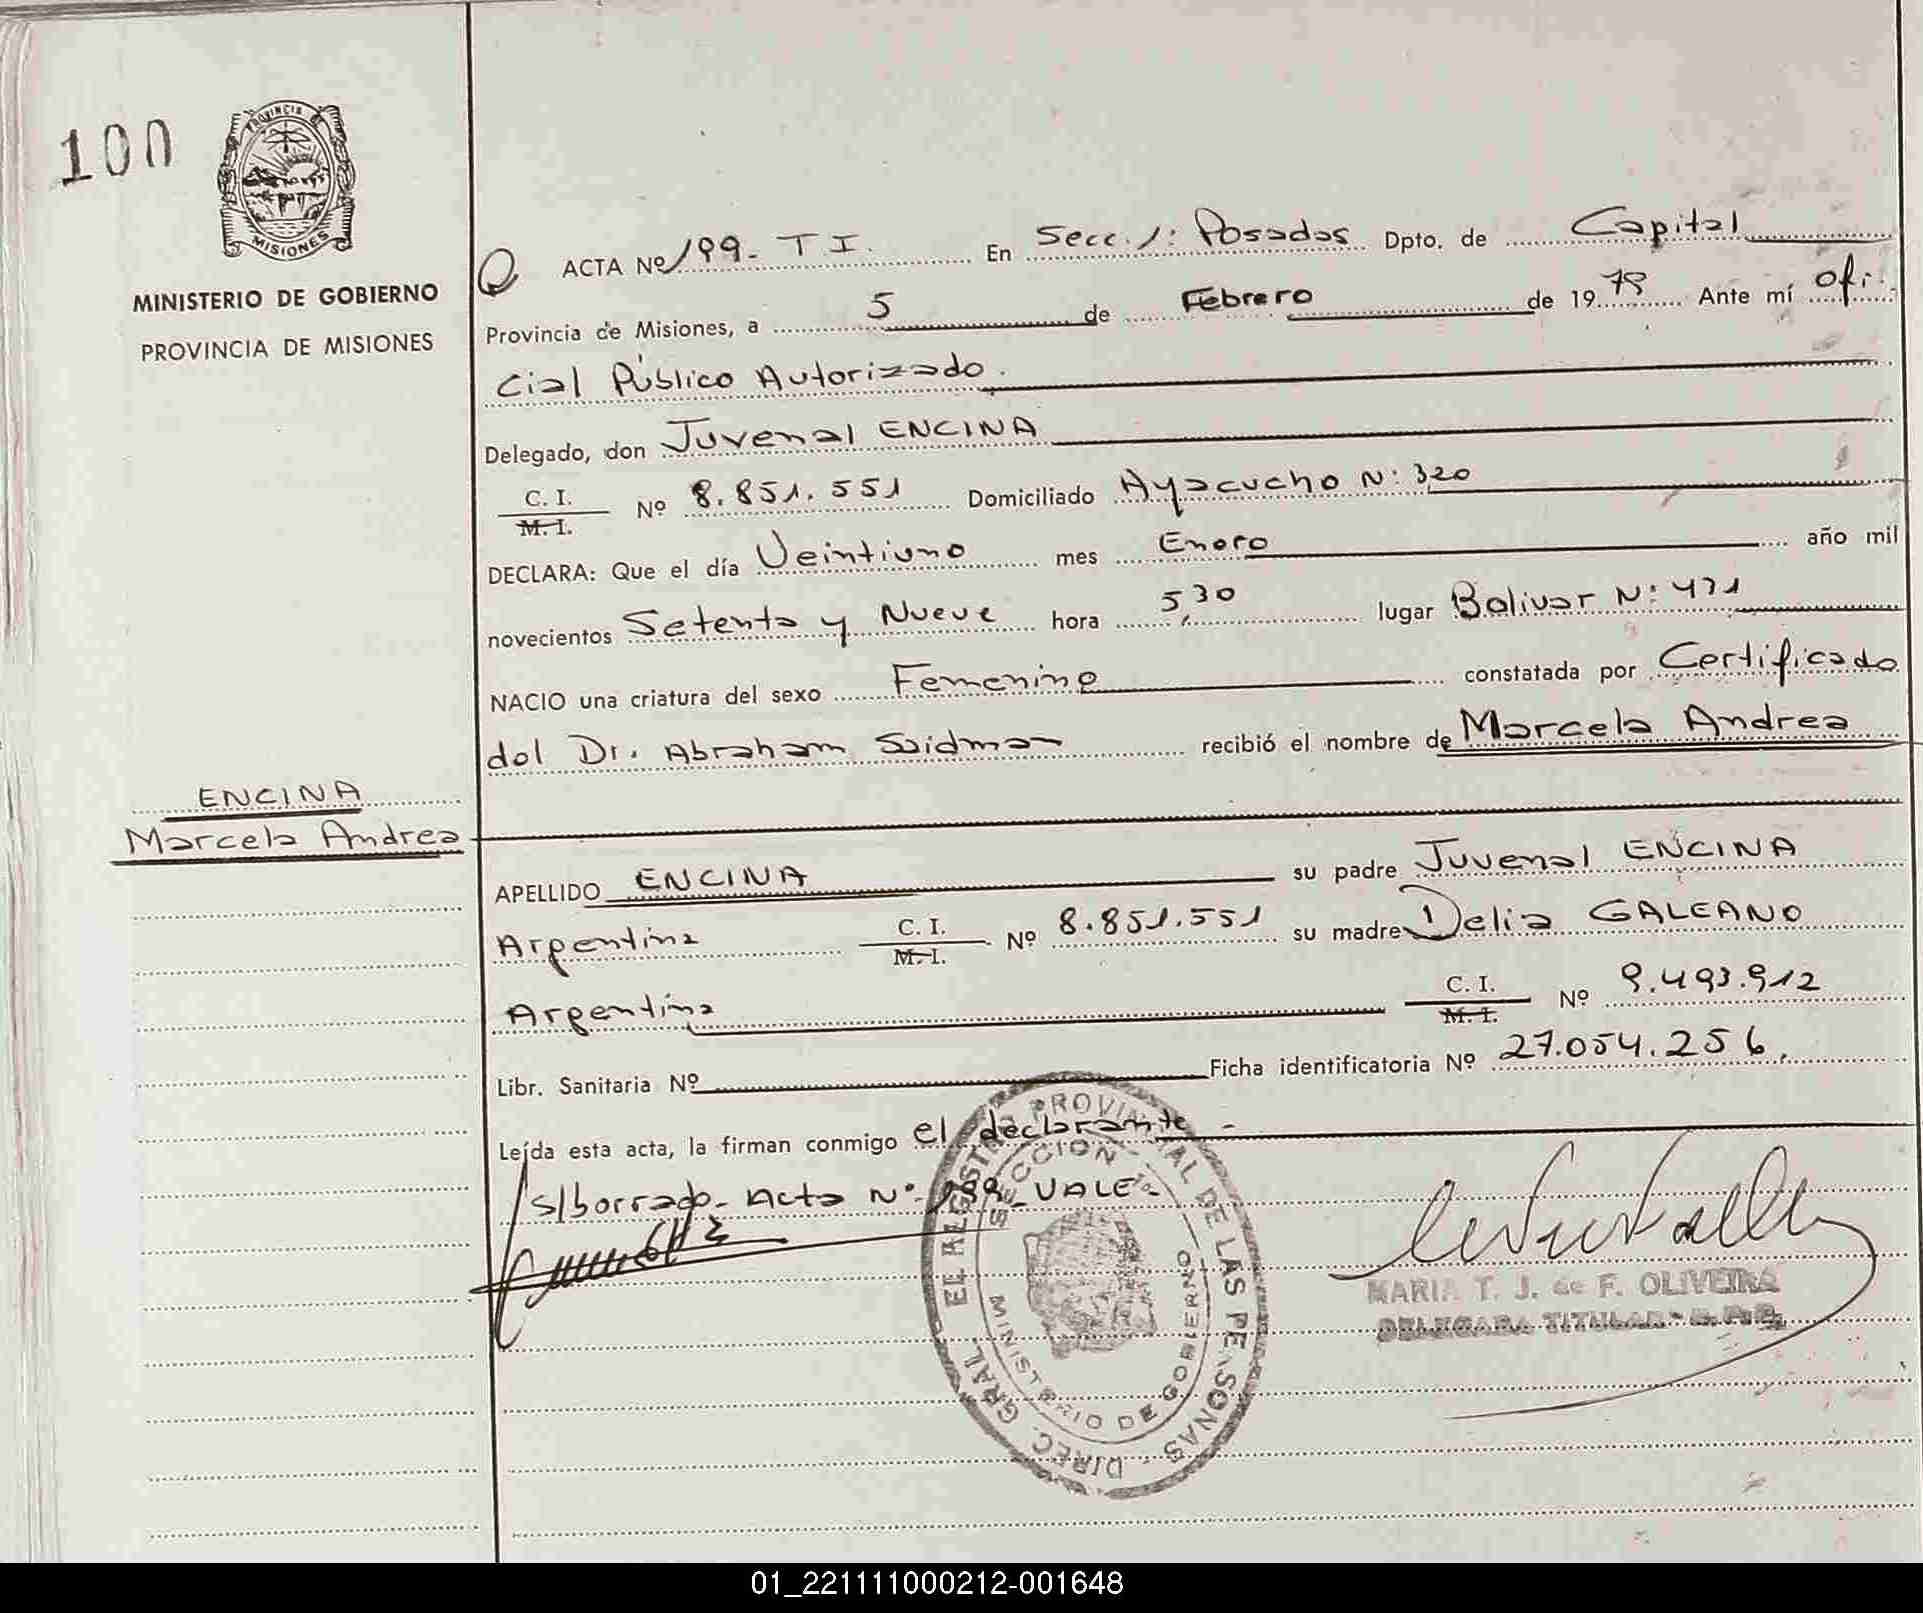 100
PROVINCIA DE
MISIONES
MINISTERIO DE GOBIERNO
PROVINCIA DE MISIONES
ACTA Nº 199 - T I. En Secc. 1: Posadas Dpto. de Capital
Provincia de Misiones, a 5 de Febrero de 1979 Ante mí Ofi-
cial Público Autorizado.
Delegado, don Juvenal ENCINA
C. I.
M. I. Nº 8.851.551 Domiciliado Ayacucho N: 320
DECLARA: Que el día Veintiuno mes Enero año mil
novecientos Setenta y Nueve hora 5,30 lugar Bolivar N: 471
NACIO una criatura del sexo Femenino constatada por Certificado
del Dr. Abraham Saidman recibió el nombre de Marcela Andrea
ENCINA
Marcela Andrea
APELLIDO ENCINA su padre Juvenal ENCINA
Argentina C. I.
M. I. Nº 8.851.551 su madre Delia GALEANO
Argentina C. I.
M. I. Nº 9.493.912
Libr. Sanitaria Nº Ficha identificatoria Nº 27.054.256.
Leída esta acta, la firman conmigo el declarante -
s/borrado - Acta Nº 199 - VALE -
MARIA T. J. de F. OLIVEIRA
DELEGADA TITULAR - R. P. P.
DIREC. GRAL. EL REGISTRO PROVINCIAL DE LAS PERSONAS
SECCION 1ª
MINISTERIO DE GOBIERNO
01_221111000212-001648